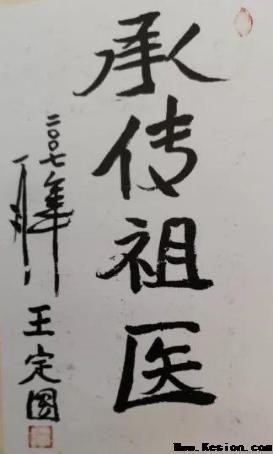 承传祖医
二〇〇七年
王定国
Www.Kesion.com